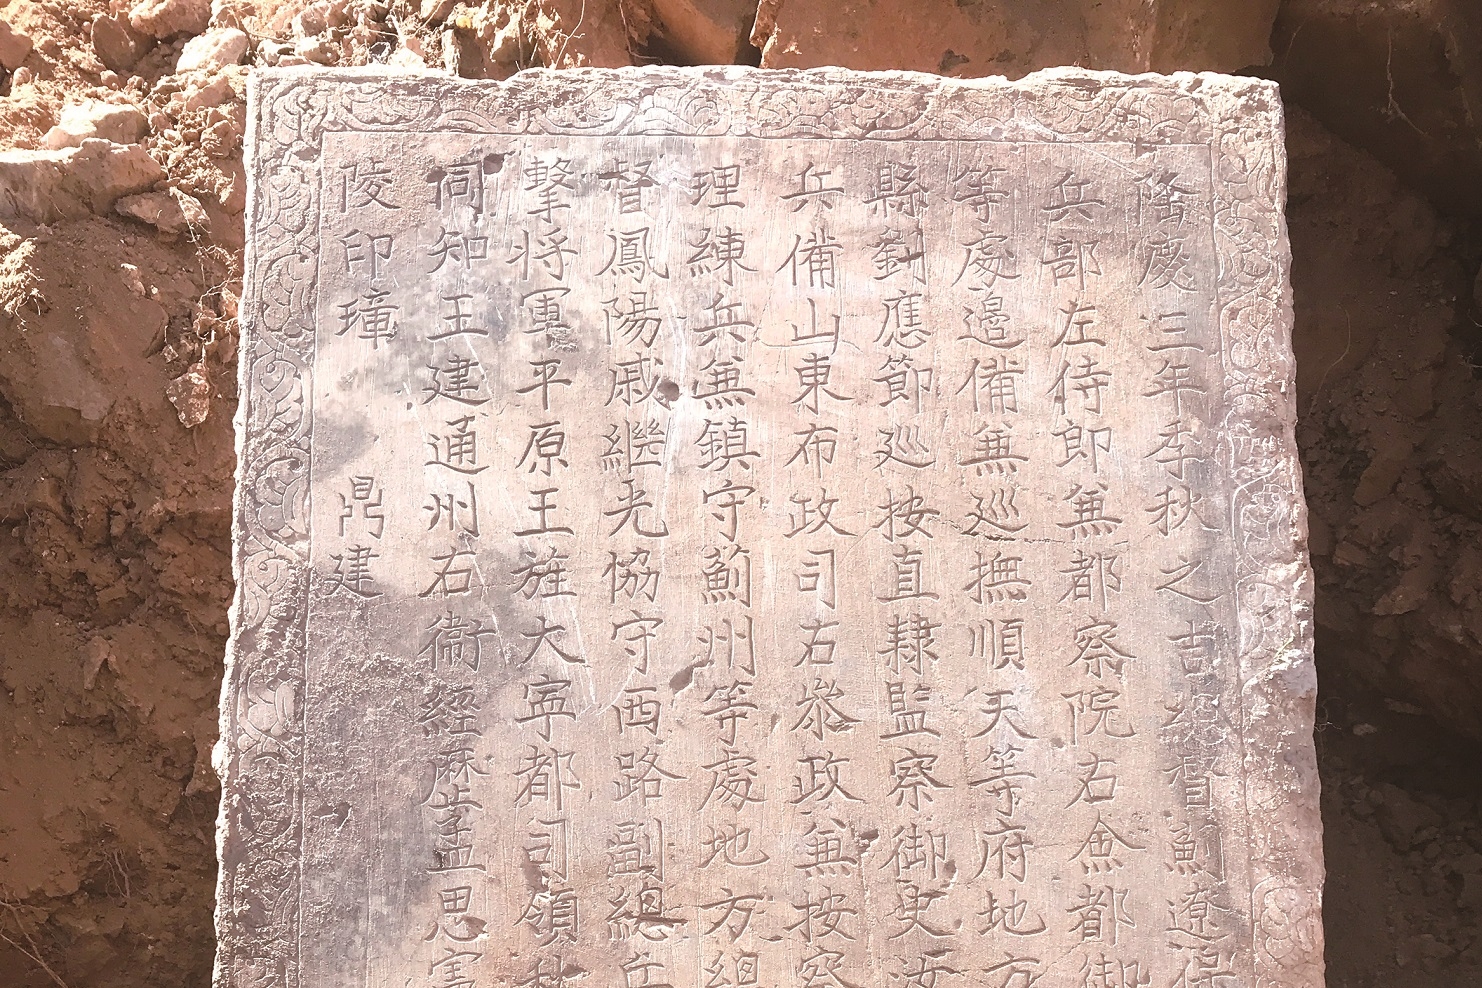 隆慶三年季秋之吉總督薊遼保
兵部左侍郎兼都察院右僉都御
等處邊備兼巡撫順天等府地方
縣劉應節巡按直隸監察御史
兵備山東布政司右叅政兼按察
理練兵兼鎮守薊州等處地方總
督鳳陽戚繼光協守西路副總兵
擊將軍平原王旌大寧都司領秋
同知王建通州右衞經歷孟思
陵印璋 鼎建